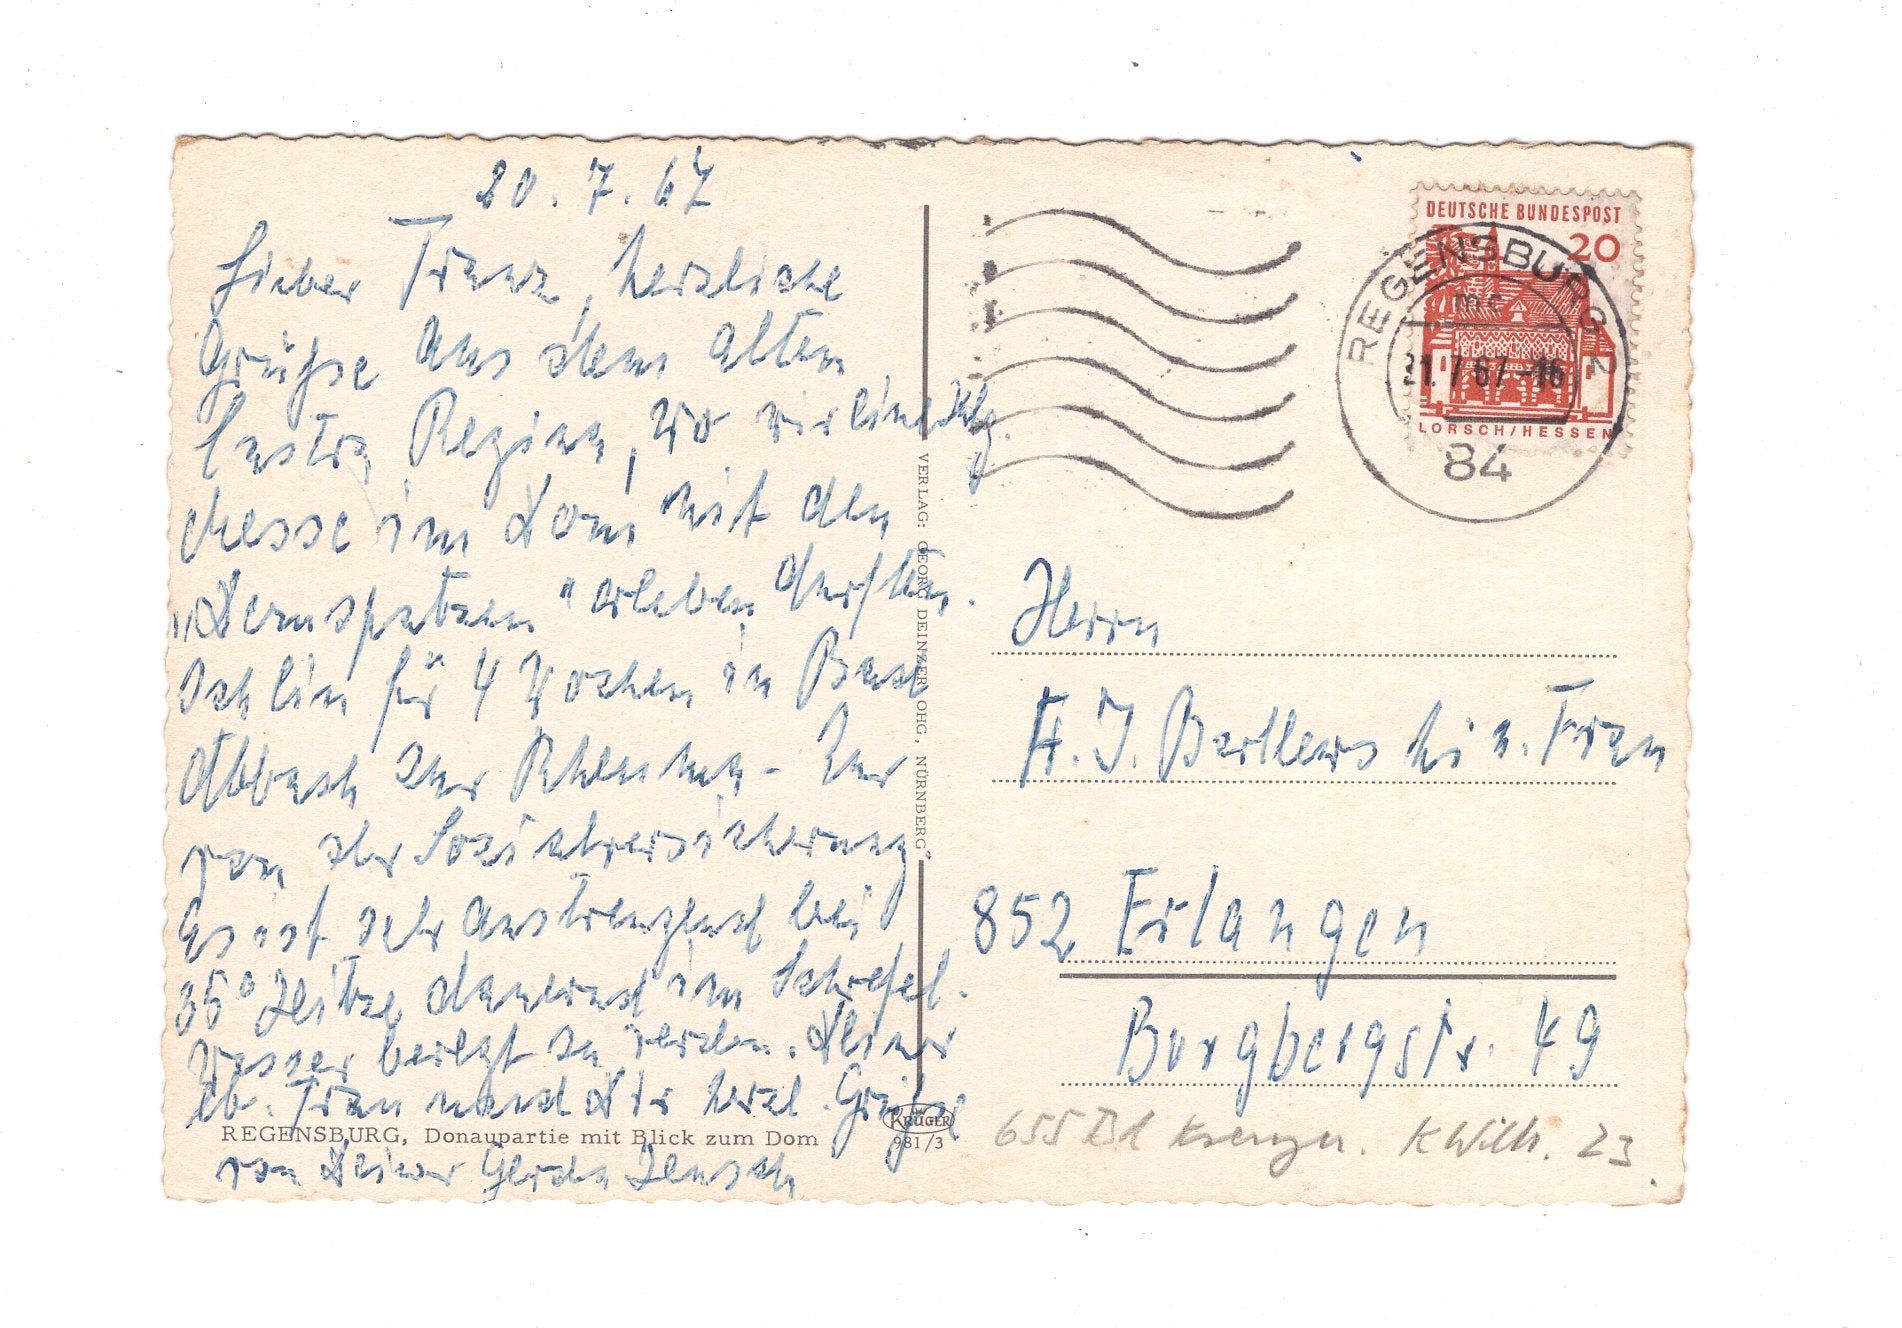 20.7.67
Lieber Franz, herzliche
Grüße aus dem alten
Castra Regina, wo wir eine Klg.
Messe im Dom mit den
"Domspatzen" erleben durften.
Ich bin für 4 Wochen in Bad
Abbach zur Rheuma- Kur
von der Sozialversicherung.
Es ist sehr anstrengend bei
35° Hitze dauernd im Schwefel-
wasser bewegt zu werden. Deiner
lb. Frau und Dir herzl. Grüße
von Deiner Gerda
REGENSBURG, Donaupartie mit Blick zum Dom
KRÜGER
981/3
VERLAG: GEORG DEINZER OHG, NÜRNBERG
DEUTSCHE BUNDESPOST
20
LORSCH/HESSEN
REGENSBURG 2
mc
21.7.67-16
84
Herrn
F. J. u. Frau
852 Erlangen
Burgbergstr. 49
655 Bd K Wilh. 23